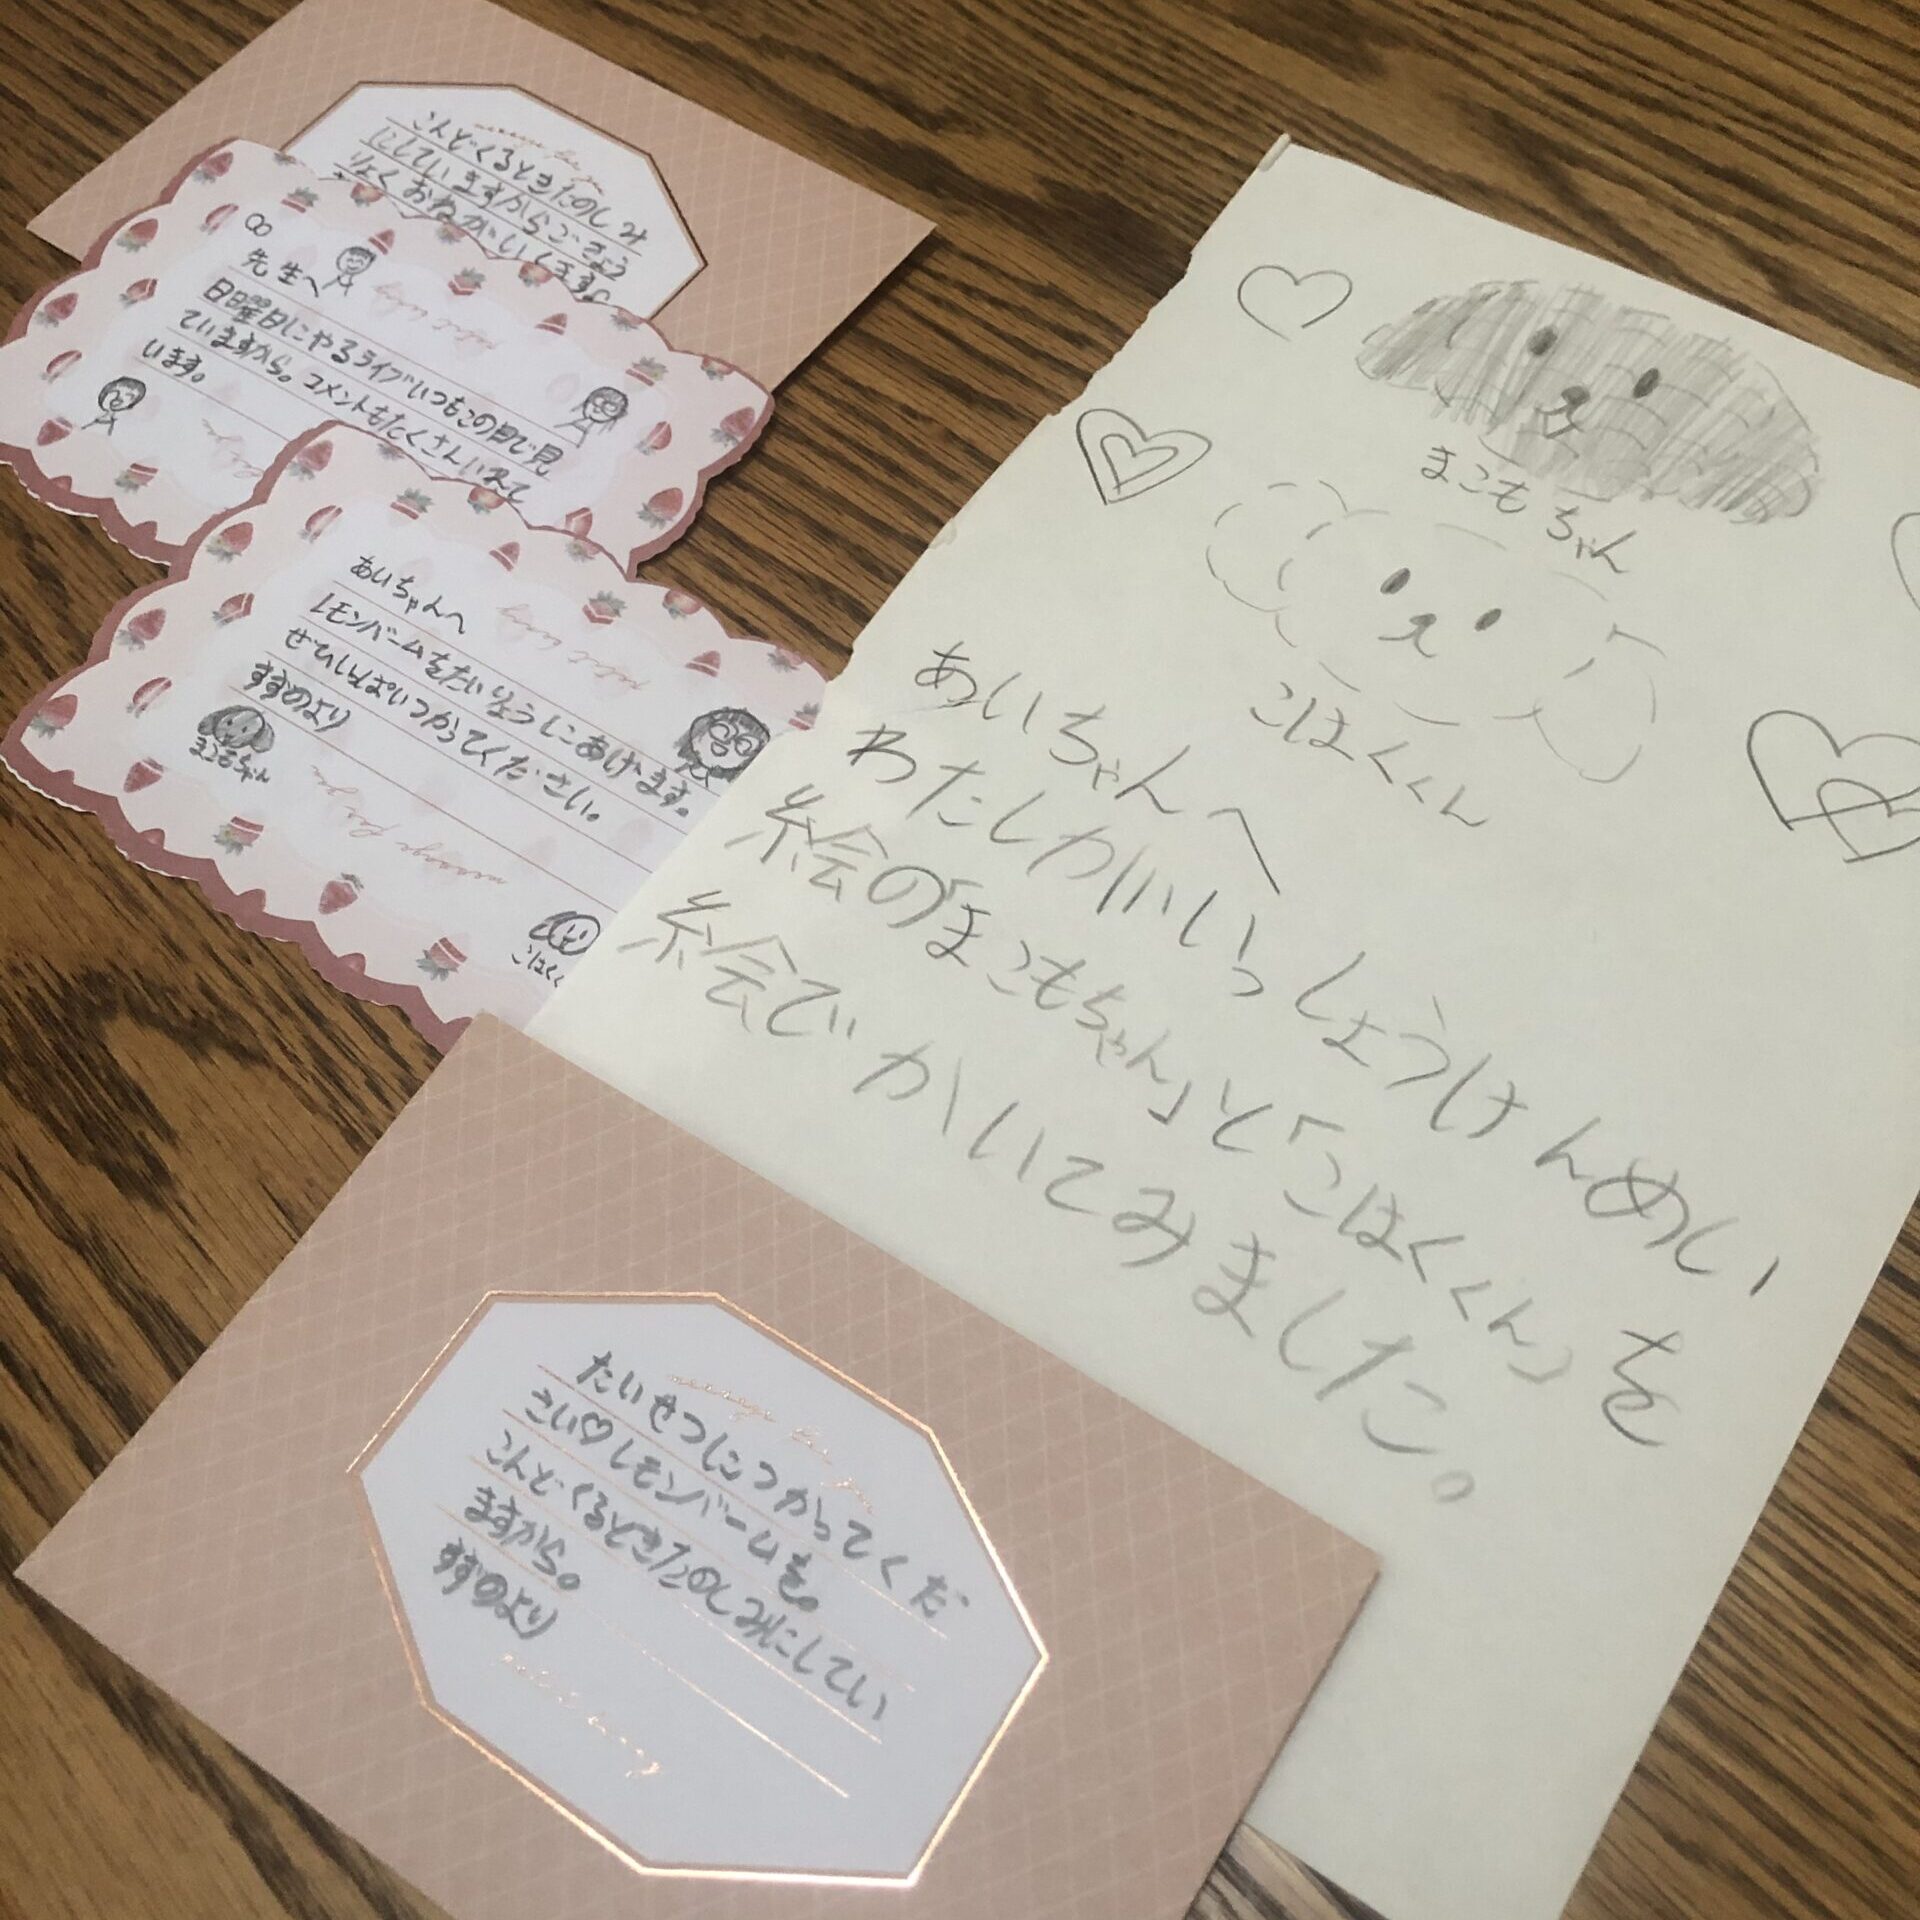 こんどくるときたのしみ
にしていますからごきょう
りょくおねがいします。
∞
先生へ
日日曜日にやるライブいつもこの日で見
ていますから。コメントもたくさんいれて
います。
あいちゃんへ
レモンバームをたいりょうにあげます。
ぜひいっぱいつかってください。
すずのより
まこもちゃん
こはくく
まこもちゃん
こはくくん
あいちゃんへ
わたしがいっしょうけんめい
絵の「まこもちゃん」と「こはくくん」を
絵でかいてみました。
たいせつにつかってくだ
さい♡レモンバームを。
こんどくるときたのしみにしてい
ますから。
すずのより